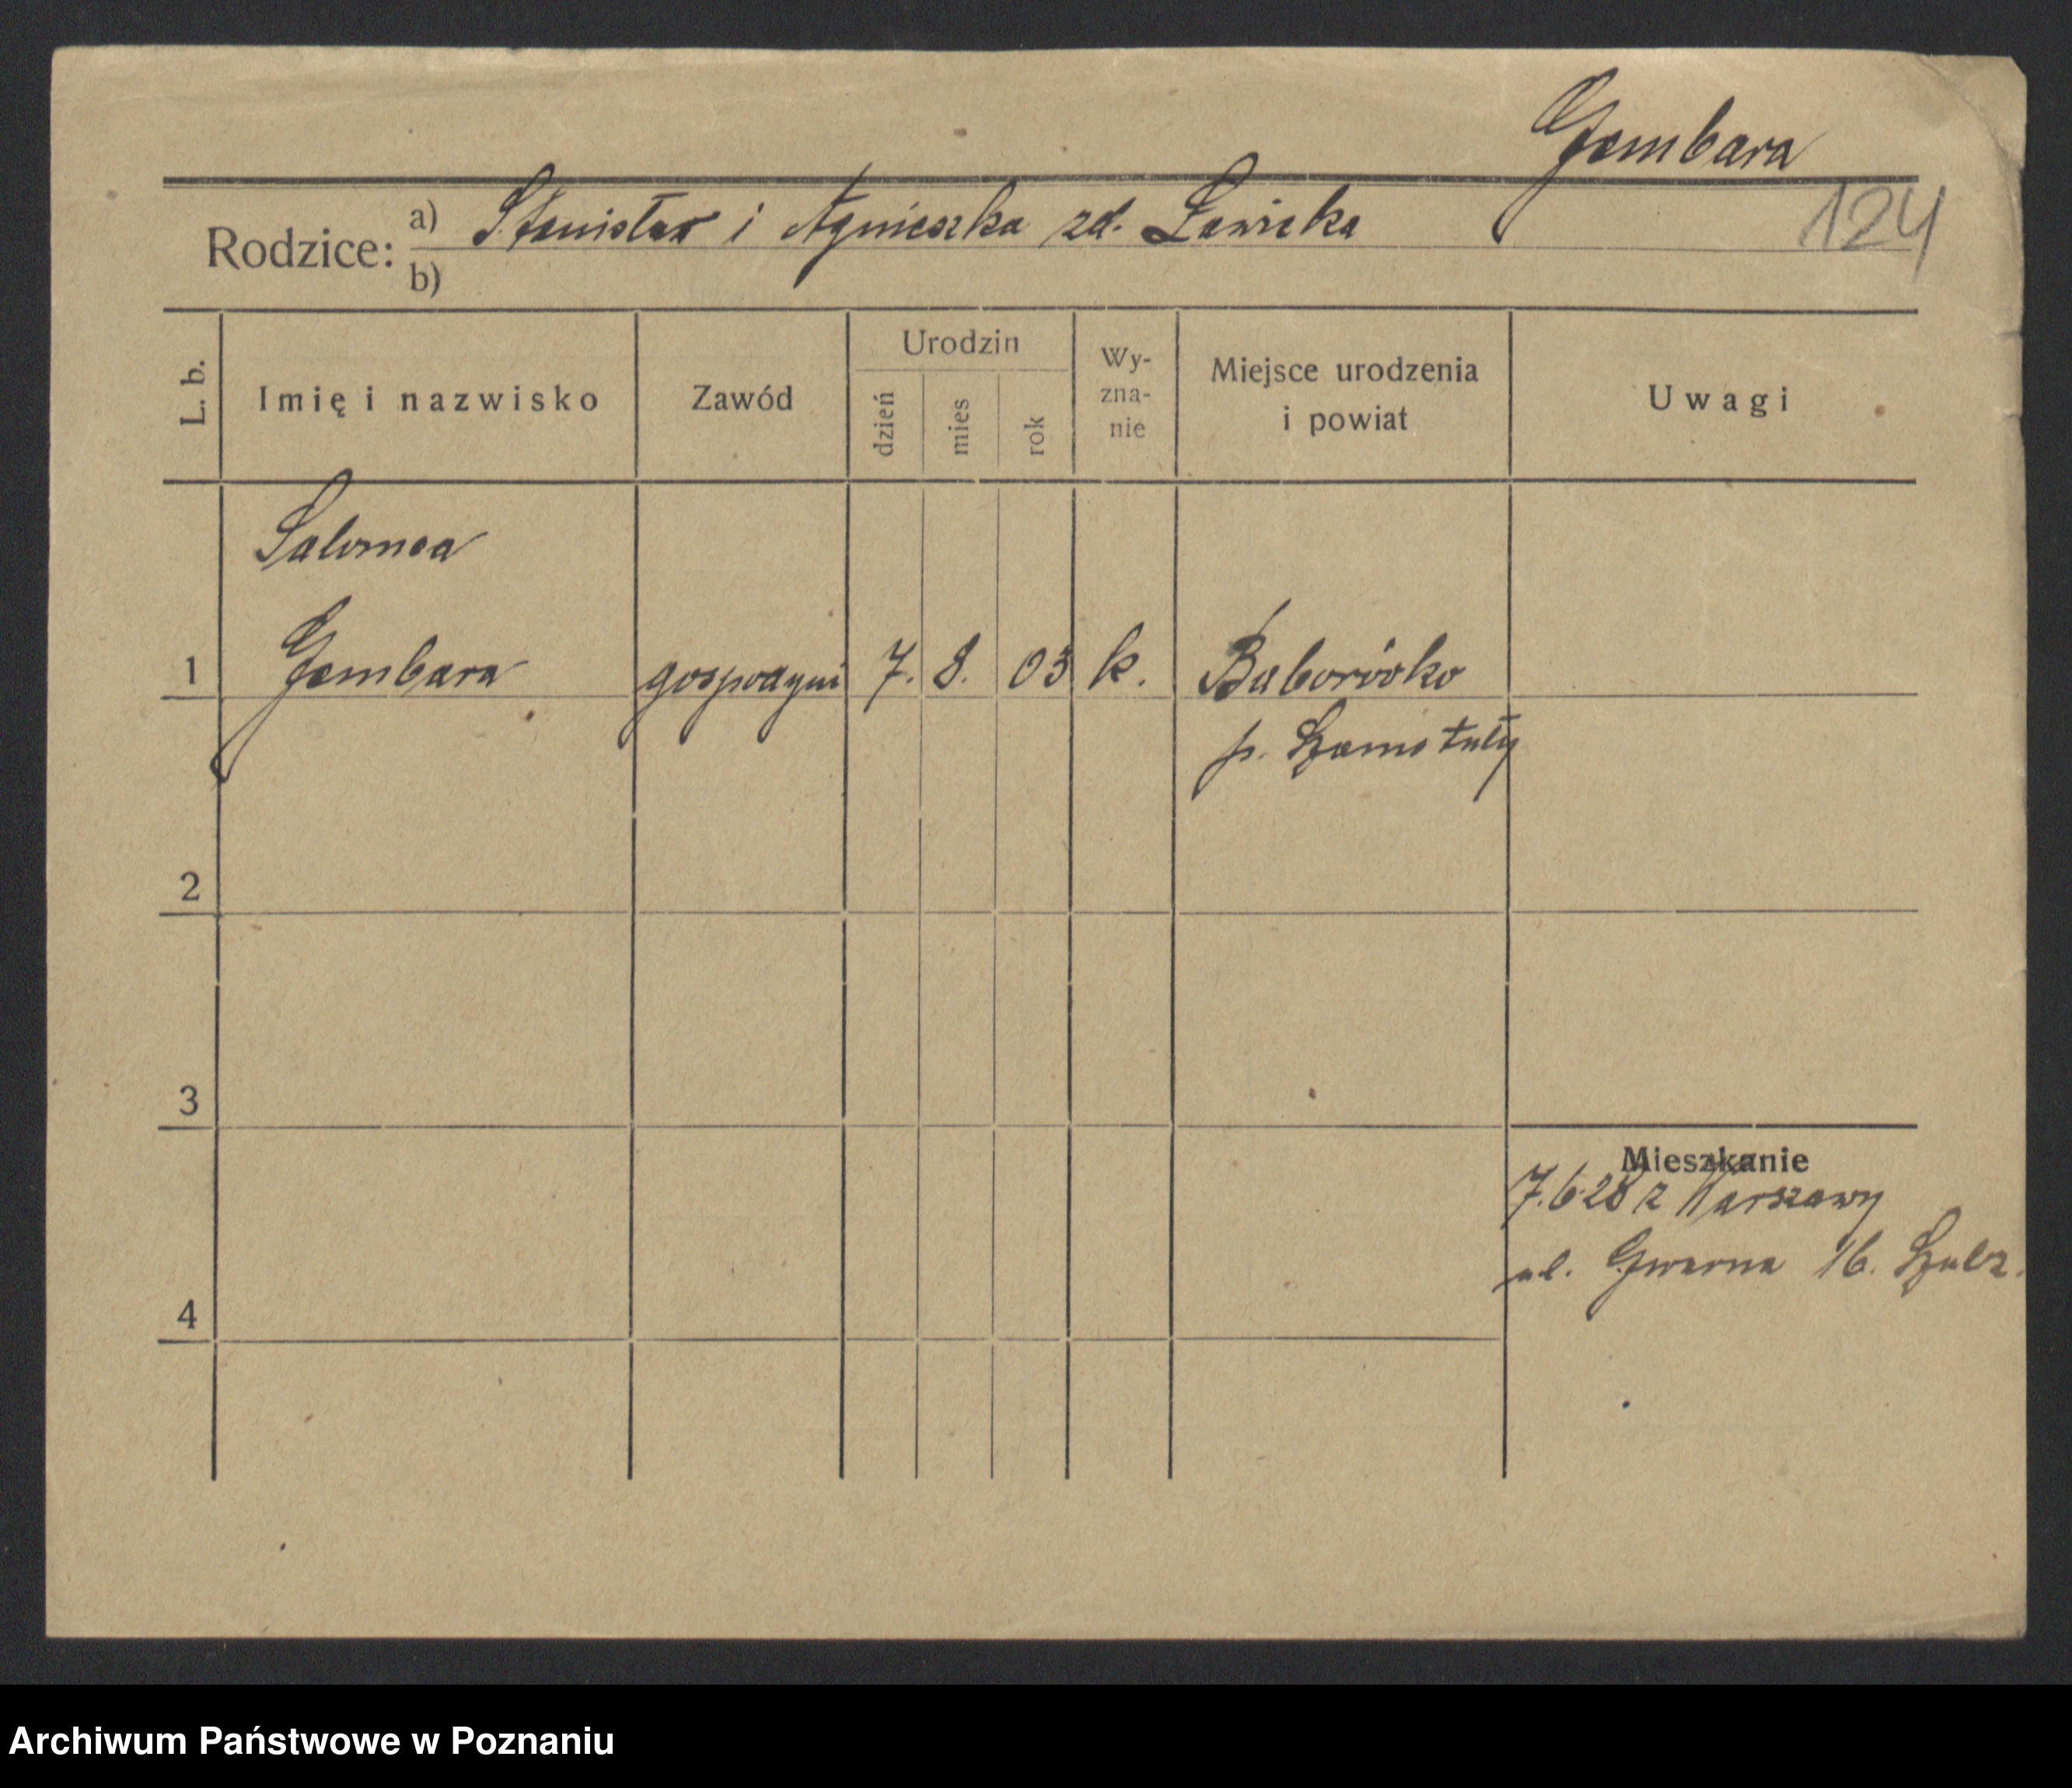 Gembara
124
Rodzice: a) Stanisław i Agnieszka zd. Ławicka
b)
L. b. Imię i nazwisko Zawód Urodzin dzień mies rok Wy-zna-nie Miejsce urodzenia i powiat Uwagi
Salomea
1 Gembara gospodyni 7. 8. 03 k. Baborówko
p. Szamotuły
2
3
Mieszkanie
7.6.28 z Warszawy
ul. Gwarna 16. Szulz.
4
Archiwum Państwowe w Poznaniu